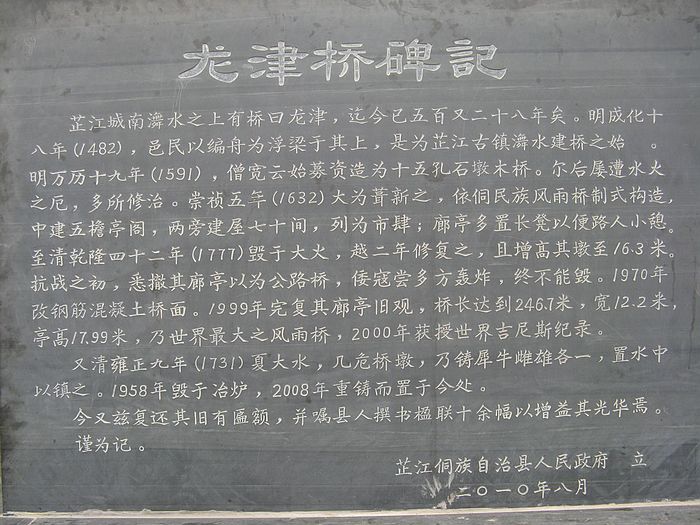 龙津桥碑記
芷江城南㵲水之上有桥曰龙津，迄今已五百又二十八年矣。明成化十
八年(1482)，邑民以编舟为浮梁于其上，是为芷江古镇㵲水建桥之始 。
明万历十九年(1591)，僧宽云始募资造为十五孔石墩木桥。尔后屡遭水火
之厄，多所修治。崇祯五年(1632)大为葺新之，依侗民族风雨桥制式构造，
中建五檐亭阁，两旁建屋七十间，列为市肆；廊亭多置长凳以便路人小憩。
至清乾隆四十二年(1777)毁于大火，越二年修复之，且增高其墩至16.3米。
抗战之初，悉撤其廊亭以为公路桥，倭寇尝多方轰炸，终不能毁。1970年
改钢筋混凝土桥面。1999年完复其廊亭旧观，桥长达到246.7米，宽12.2米，
亭高17.99米，乃世界最大之风雨桥，2000年获授世界吉尼斯纪录。
又清雍正九年(1731)夏大水，几危桥墩，乃铸犀牛雌雄各一，置水中
以镇之。1958年毁于冶炉，2008年重铸而置于今处。
今又兹复还其旧有匾额，并嘱县人撰书楹联十余幅以增益其光华焉。
谨为记。
芷江侗族自治县人民政府 立
二〇一〇年八月